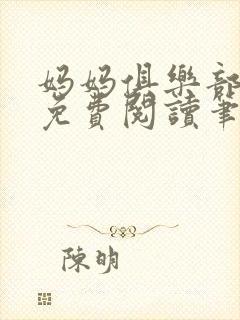 媽媽俱樂部
免費閱讀筆
陳明